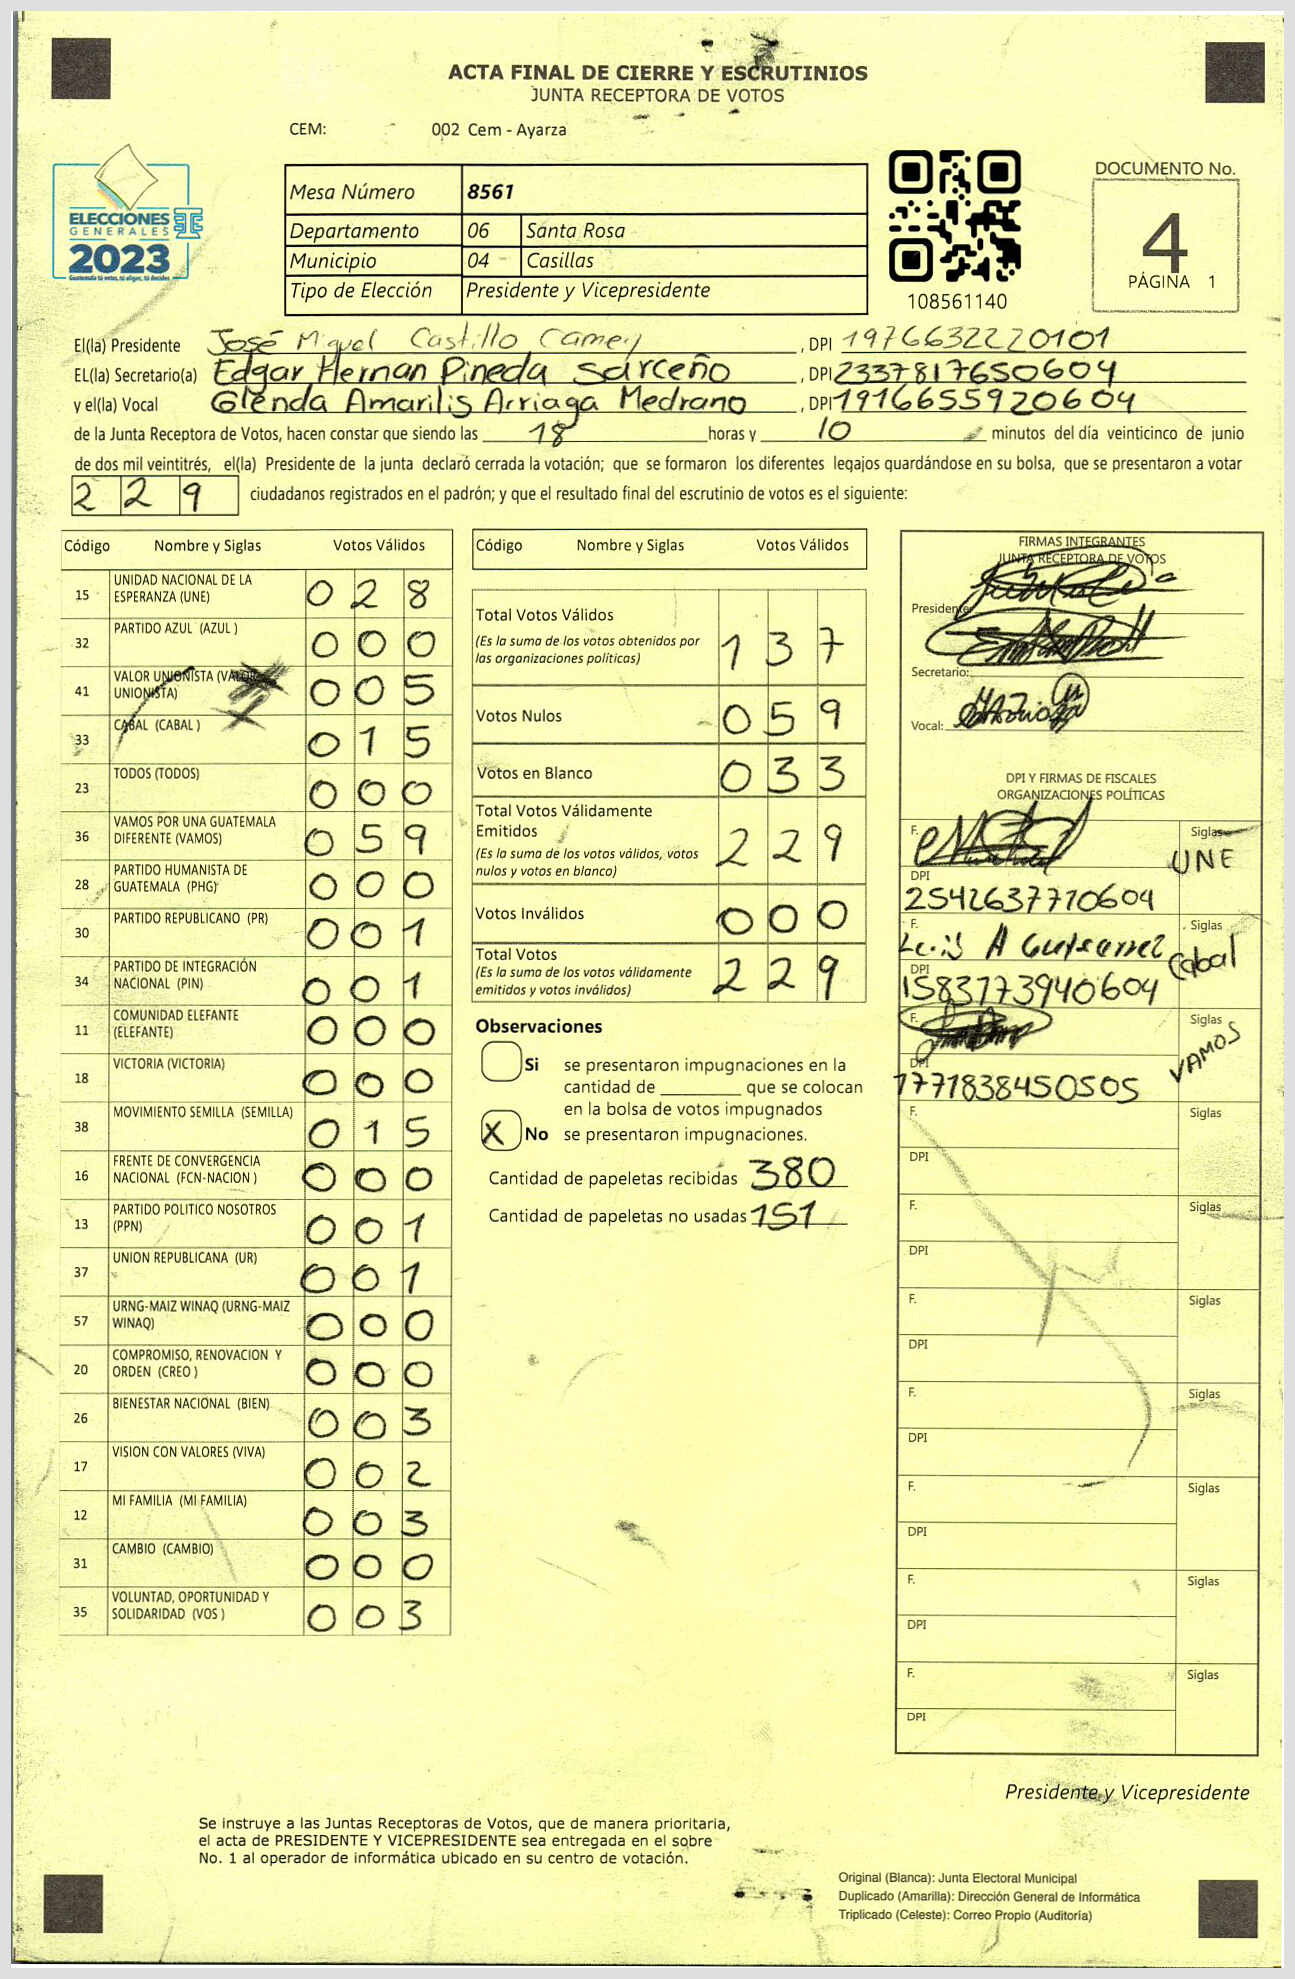 ACTA FINAL DE CIERRE Y ESCRUTINIOS
JUNTA RECEPTORA DE VOTOS
CEM: 002 Cem - Ayarza
ELECCIONES
GENERALES
2023
Guatemala tú votas, tú eliges, tú decides
Mesa Número 8561
Departamento 06 Santa Rosa
Municipio 04 Casillas
Tipo de Elección Presidente y Vicepresidente
108561140
DOCUMENTO No.
4
PÁGINA 1
El(la) Presidente José Miguel Castillo Camey, DPI 1976632220101
EL(la) Secretario(a) Edgar Hernan Pineda Sarceño, DPI 2337817650604
y el(la) Vocal Glenda Amarilis Arriaga Medrano, DPI 1916655920604
de la Junta Receptora de Votos, hacen constar que siendo las 18 horas y 10 minutos del día veinticinco de junio
de dos mil veintitrés, el(la) Presidente de la junta declaró cerrada la votación; que se formaron los diferentes legajos guardándose en su bolsa, que se presentaron a votar
229 ciudadanos registrados en el padrón; y que el resultado final del escrutinio de votos es el siguiente:
Código Nombre y Siglas Votos Válidos
15 UNIDAD NACIONAL DE LA ESPERANZA (UNE) 028
32 PARTIDO AZUL (AZUL ) 000
41 VALOR UNIONISTA (VALOR UNIONISTA) 005
33 CABAL (CABAL ) 015
23 TODOS (TODOS) 000
36 VAMOS POR UNA GUATEMALA DIFERENTE (VAMOS) 059
28 PARTIDO HUMANISTA DE GUATEMALA (PHG) 000
30 PARTIDO REPUBLICANO (PR) 001
34 PARTIDO DE INTEGRACIÓN NACIONAL (PIN) 001
11 COMUNIDAD ELEFANTE (ELEFANTE) 000
18 VICTORIA (VICTORIA) 000
38 MOVIMIENTO SEMILLA (SEMILLA) 015
16 FRENTE DE CONVERGENCIA NACIONAL (FCN-NACION ) 000
13 PARTIDO POLITICO NOSOTROS (PPN) 001
37 UNION REPUBLICANA (UR) 001
57 URNG-MAIZ WINAQ (URNG-MAIZ WINAQ) 000
20 COMPROMISO, RENOVACION Y ORDEN (CREO ) 000
26 BIENESTAR NACIONAL (BIEN) 003
17 VISION CON VALORES (VIVA) 002
12 MI FAMILIA (MI FAMILIA) 003
31 CAMBIO (CAMBIO) 000
35 VOLUNTAD, OPORTUNIDAD Y SOLIDARIDAD (VOS ) 003
Código Nombre y Siglas Votos Válidos
Total Votos Válidos 137
(Es la suma de los votos obtenidos por las organizaciones políticas)
Votos Nulos 059
Votos en Blanco 033
Total Votos Válidamente Emitidos 229
(Es la suma de los votos válidos, votos nulos y votos en blanco)
Votos Inválidos 000
Total Votos 229
(Es la suma de los votos válidamente emitidos y votos inválidos)
Observaciones
Si se presentaron impugnaciones en la
cantidad de ________ que se colocan
en la bolsa de votos impugnados
X No se presentaron impugnaciones.
Cantidad de papeletas recibidas 380
Cantidad de papeletas no usadas 151
FIRMAS INTEGRANTES
JUNTA RECEPTORA DE VOTOS
Presidente:
Secretario:
Vocal:
DPI Y FIRMAS DE FISCALES
ORGANIZACIONES POLÍTICAS
F. Siglas UNE
DPI 2542637710604
F. Luis A Gutierrez Siglas Cabal
DPI 1583173940604
F. Siglas VAMOS
DPI 1771838450505
F. Siglas
DPI
F. Siglas
DPI
F. Siglas
DPI
F. Siglas
DPI
F. Siglas
DPI
F. Siglas
DPI
F. Siglas
DPI
Presidente y Vicepresidente
Se instruye a las Juntas Receptoras de Votos, que de manera prioritaria,
el acta de PRESIDENTE Y VICEPRESIDENTE sea entregada en el sobre
No. 1 al operador de informática ubicado en su centro de votación.
Original (Blanca): Junta Electoral Municipal
Duplicado (Amarilla): Dirección General de Informática
Triplicado (Celeste): Correo Propio (Auditoría)